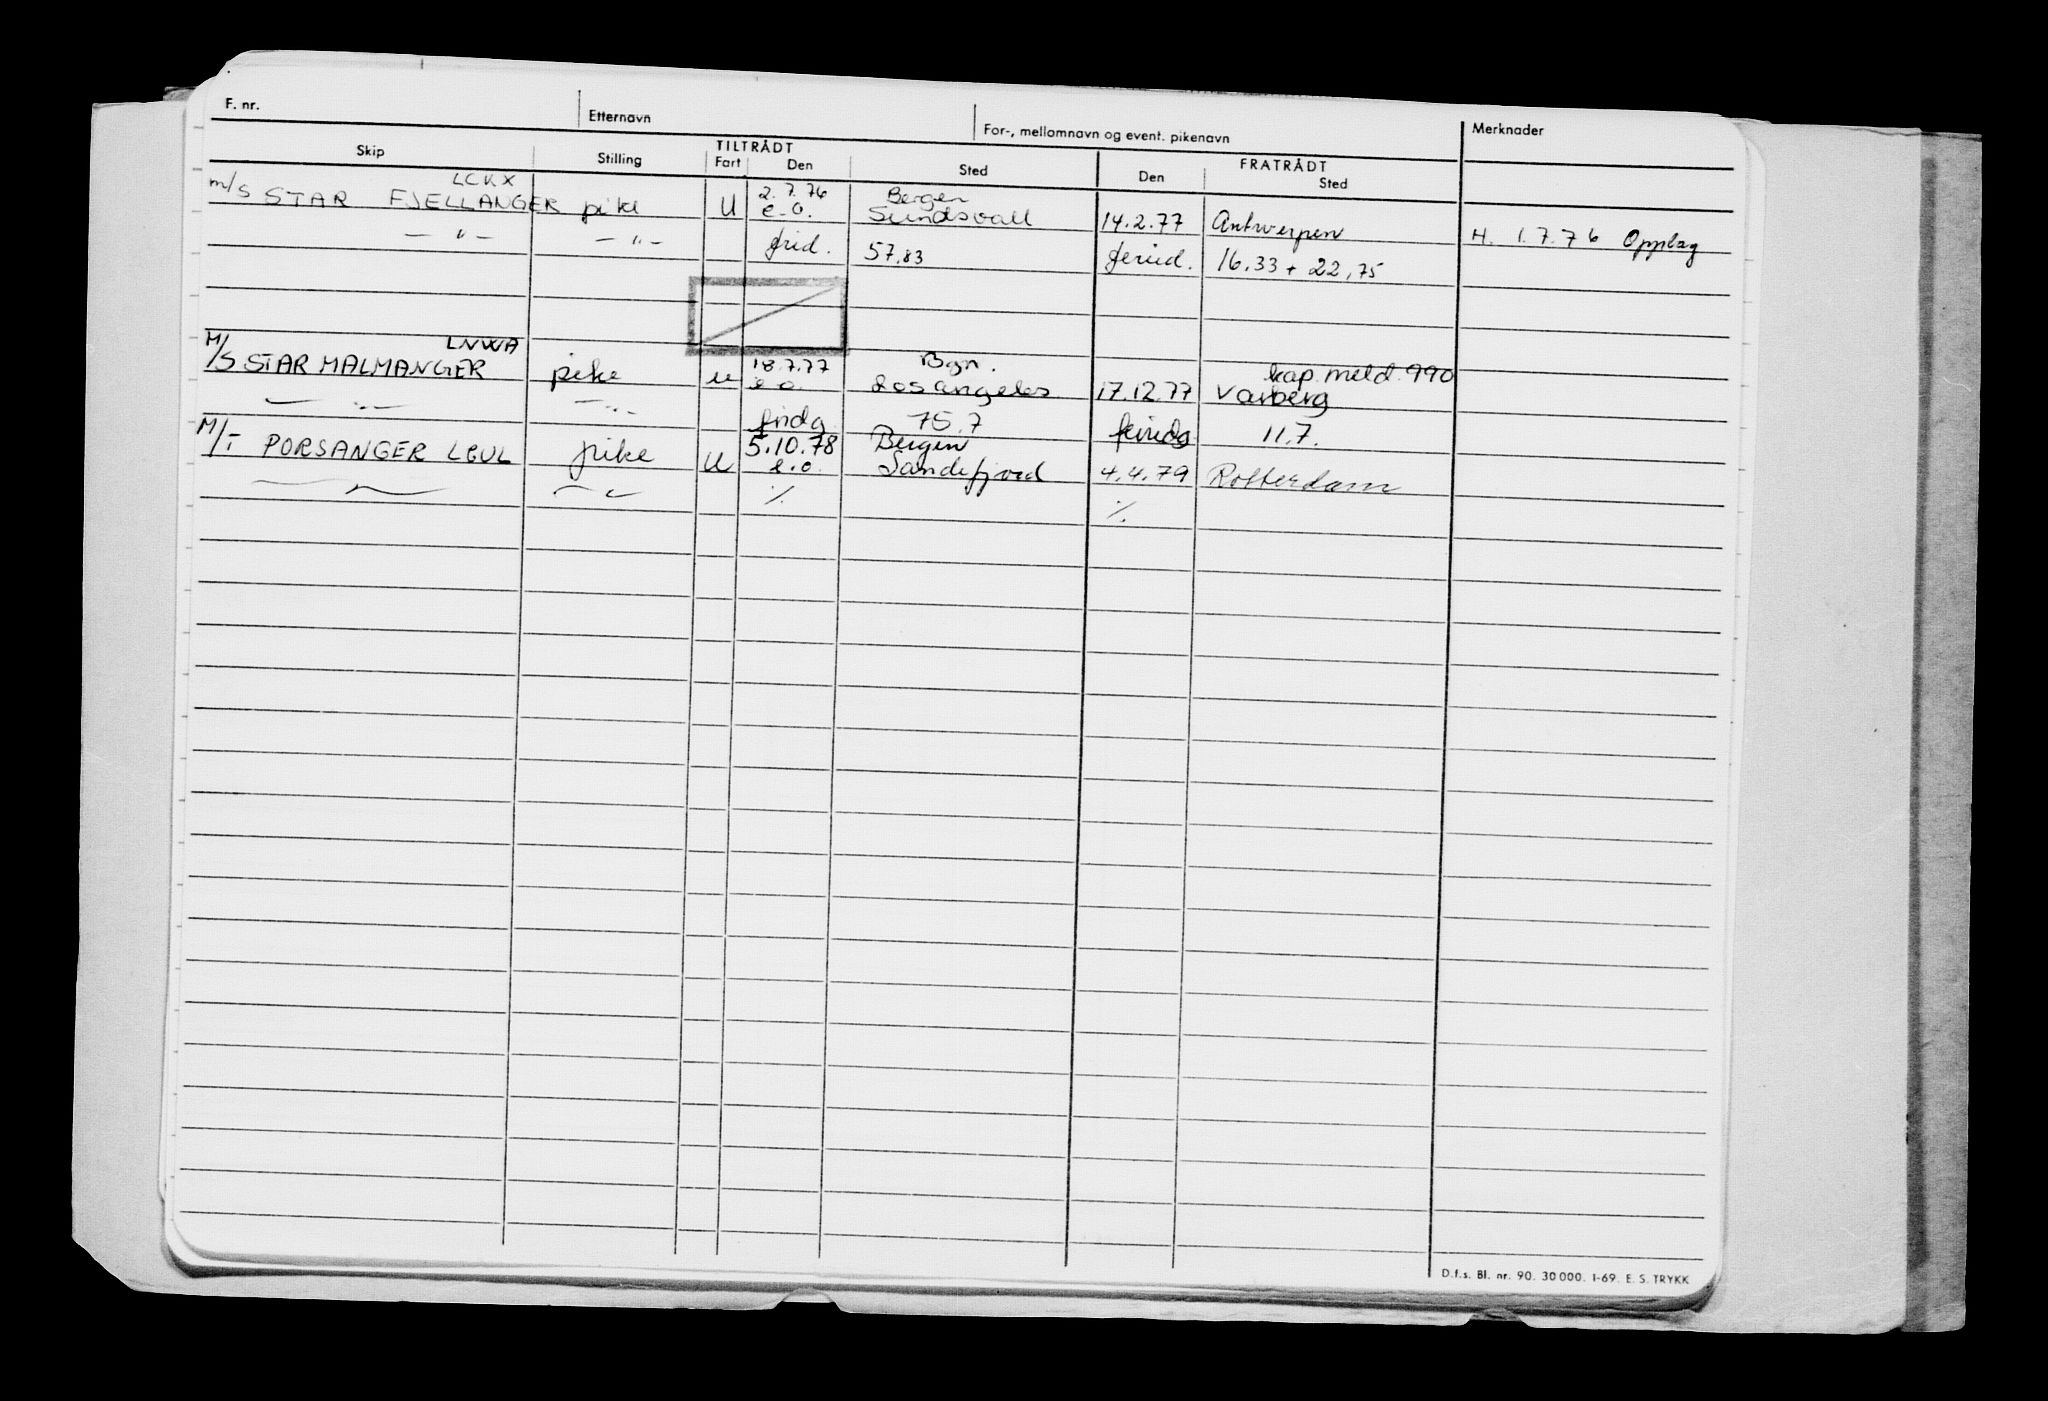 F. nr. Etternavn For-, mellomnavn og event. pikenavn Merknader
Skip Stilling TILTRÅDT Fart Den Sted FRATRÅDT Den Sted
LCKX 2.7.76 Bergen
m/s STAR FJELLANGER pike U e.o. Sundsvall 14.2.77 Antwerpen
— " — — " — frid. 57,83 feried. 16.33 + 22,75 H. 1.7.76 Opplag
LNWA 18.7.77 Bgn. kap. meld. 990
M/S STAR MALMANGER pike u e.o. Los angeles 17.12.77 Varberg
— " — — " — fridg. 75.7 feried. 11.7.
5.10.78 Bergen
M/T PORSANGER LEUL pike u e.o. Sandefjord 4.4.79 Rotterdam
— " — — " — ./. ./.
D.f.s. Bl. nr. 90. 30 000. 1-69. E. S. TRYKK